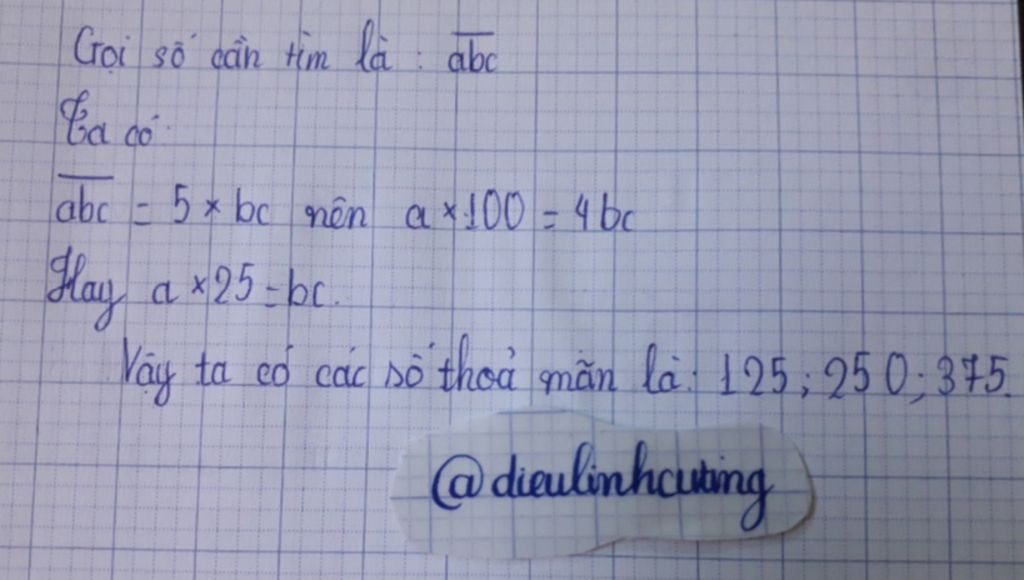 Gọi số cần tìm là : abc
Ta có:
abc = 5 × bc nên a × 100 = 4 bc
Hay a × 25 = bc.
Vậy ta có các số thoả mãn là: 125; 250; 375.
@dieulinhcutimg